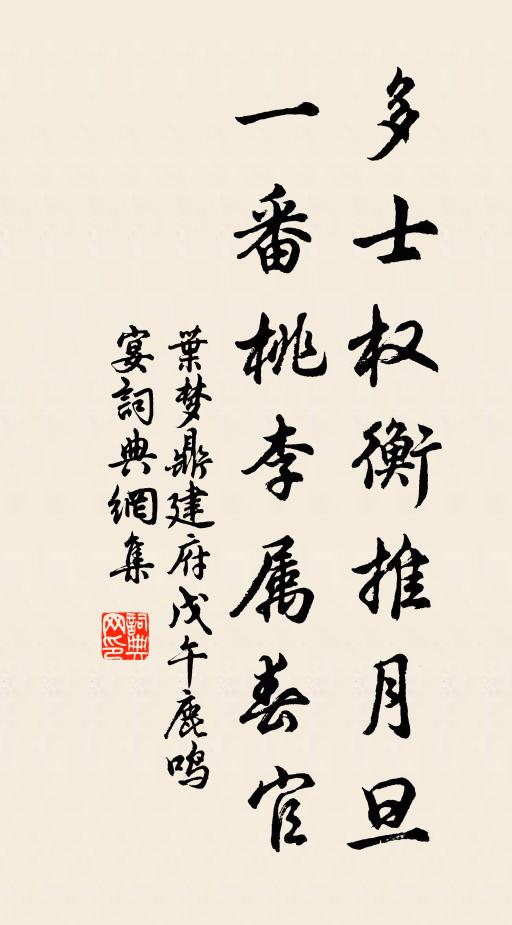 多士权衡推月旦
一番桃李属春官
葉梦鼎建府戊午鹿鸣
宴詞典網集
詞典网印